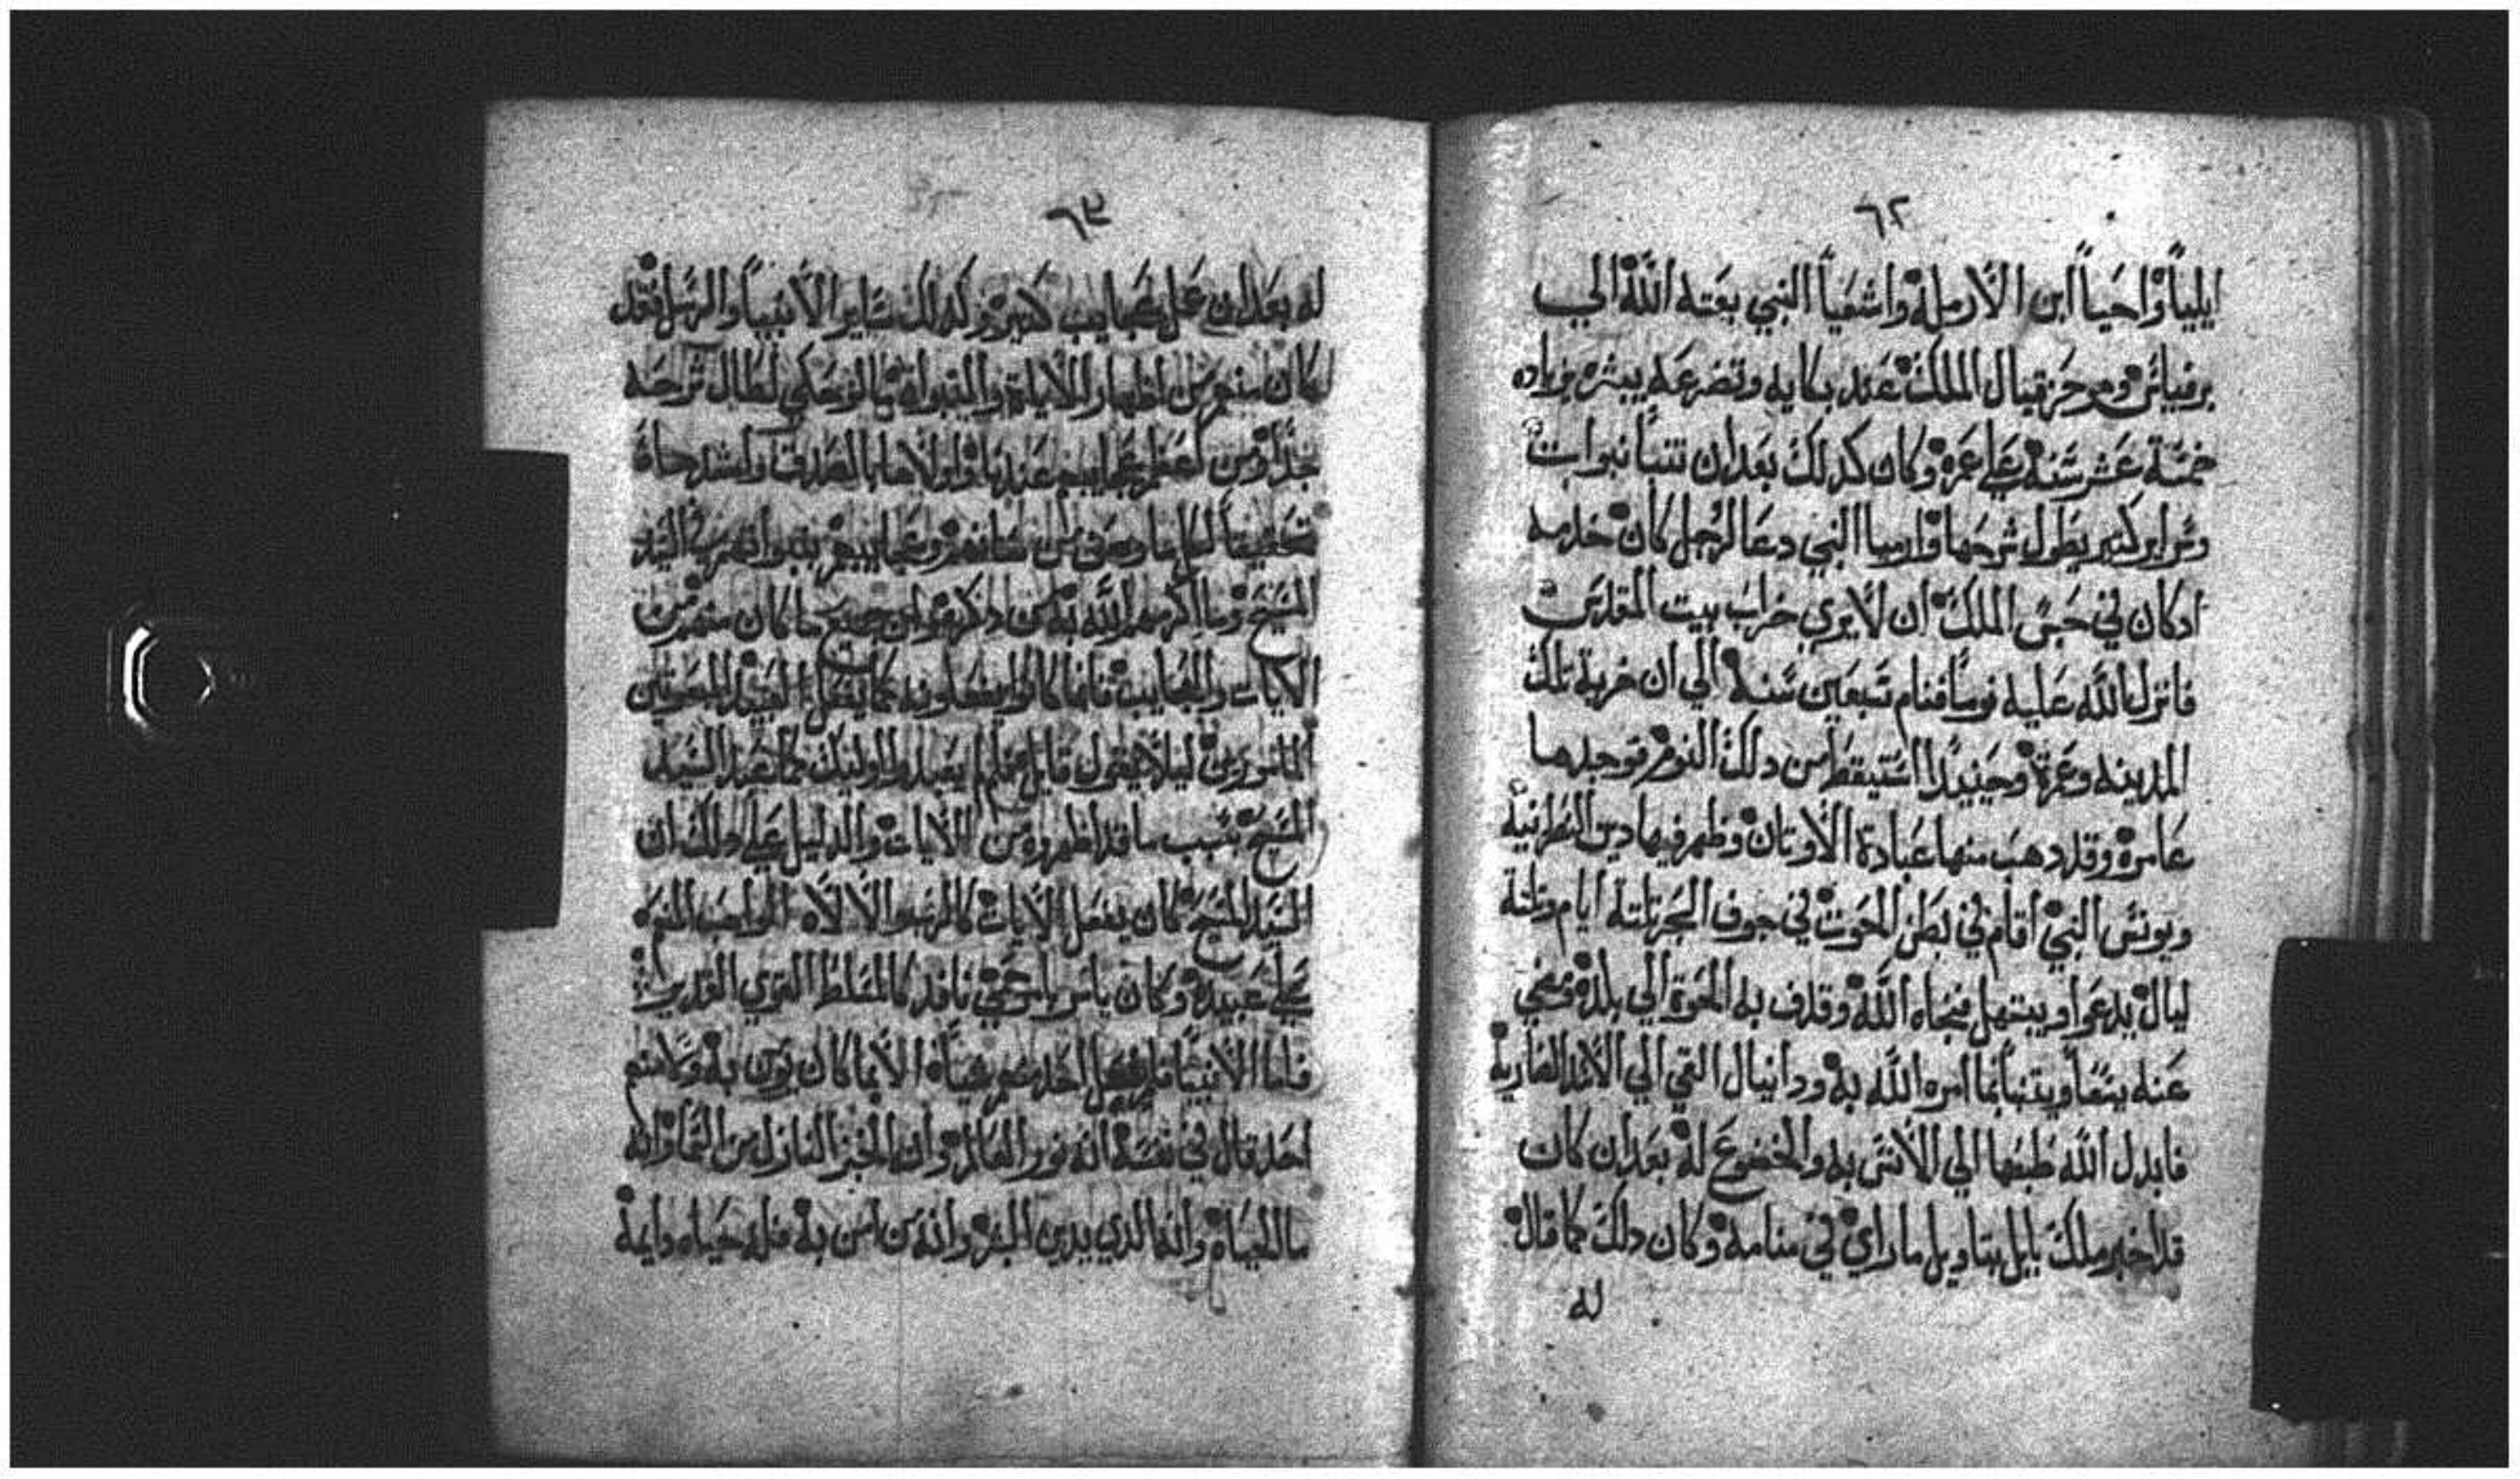 ٦٢
ايلياً واحياً ابن الارملة واشعياً النبي بعته الله الي
حزقيال الملك عند بكايه وتضرعه يبشره بزياده
خمسة عشر سنه علي عمره وكان كدلك بعد ان تنبا نبوات
كتير يطول شرحها وارميا النبي دعا لرجل كان خدمه
ادكان في حبس الملك ان لا يري خراب بيت المقدس
فانزل الله عليه نوماً فنام سبعين سنه الي ان خربة تلك
المدينه وعمرة وحينيداً استيقط من دلك النوم فوجدها
عامرة وقد دهب منها عبادة الاوتان وظهر فيها دين النصرانية
ويونس النبي اقام في بطن الحوت في جوف البحر تلتة ايام وتلتة
ليال يدعوا ويبتهل فنجاه الله وقدف به الحوة الي بلده ومضي
عنه يتنبا بما امره الله به ودانيال القي الي الاسد الضارية
فابدل الله طبعها الي الانس به والخضوع له بعد ان كان
قد اخبر ملك بابل بتاويل ما راي في منامه وكان دلك كما قال
له
٦٣
له بعد ان عمل عجايب كتيره وكدلك ساير الانبيا والرسل فقد
كان منهم من اظهار الاياة والنبواة ما لو حكي لطال شرحه
جداً ومن اعظم عجايبهم عندنا واولاها بالصدق واشد حاة
تحقيقاً من شانهم وعجايبهم نبواتهم السيد
المسيح وما اكرمهم الله به من دكره وان جميع ما كان منهم من
الايات والعجايب فانما كانوا يفعلونه كما يفعل العبيد المبعوتين
المامورين ليلا يقول قايل لم يعبدوا اوليك كما عبد السيد
المسيح بسبب ما قد اظهروه من الايات والدليل علي دلك ان
السيد المسيح كان يفعل الايات كالرب والالاه الواهب النعم
علي عبيده وكان يامر نافد كالمسلط القوي القدير
فاما الانبيا فلم يفعل احد منهم شياً الا بما كان يومر به ولا منهم
احد قال في نفسه انه نور العالم وان الخبز النازل من السما وانه
ما الحياه وانه الذي يدين البشر وانه من امن به فله حياه دايمة